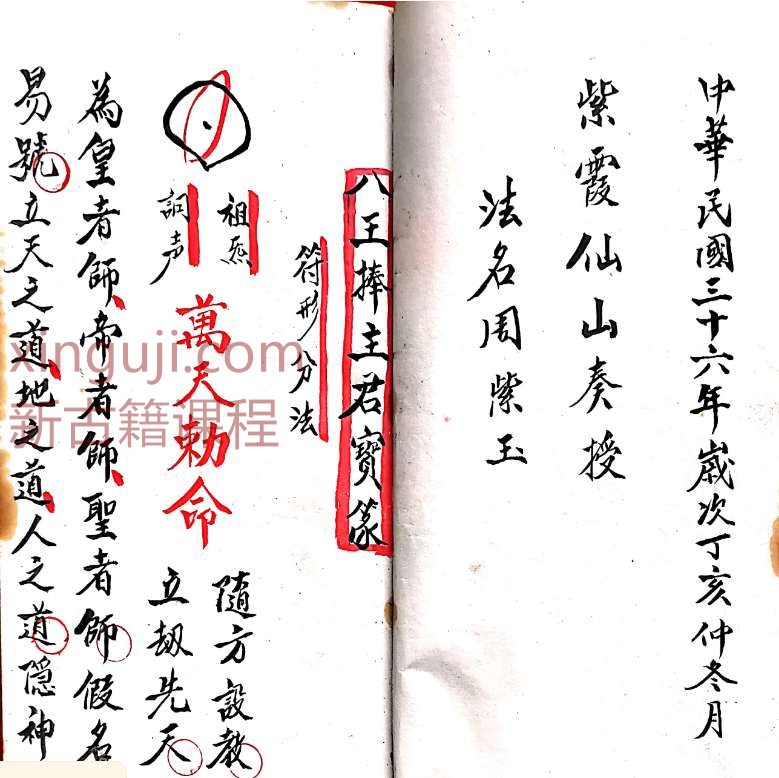 中華民國三十六年歲次丁亥仲冬月
紫霞仙山奏授
法名周紫玉
八王捧主君寶篆
符形分法
祖炁
詞声
萬天勅命
隨方設教
立劫先天
為皇者師帝者師聖者師假名
易號立天之道地之道人之道隱神
xinguji.com
新古籍课程